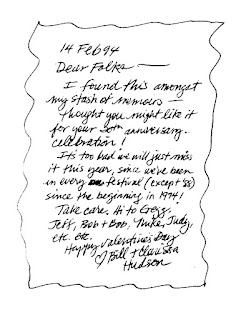 14 Feb 94
Dear Folks —
I found this amongst
my stash of memoirs —
Thought you might like it
for your 20th anniversary
celebration!
It's too bad we will just miss
it this year, since we've been
in every festival (except '88)
since the beginning in 1974!
Take care. Hi to Gregg,
Jeff, Bob + Bob, Mike, Judy,
etc. etc.
Happy Valentine's Day
♡ Bill + Clarissa
Hudson